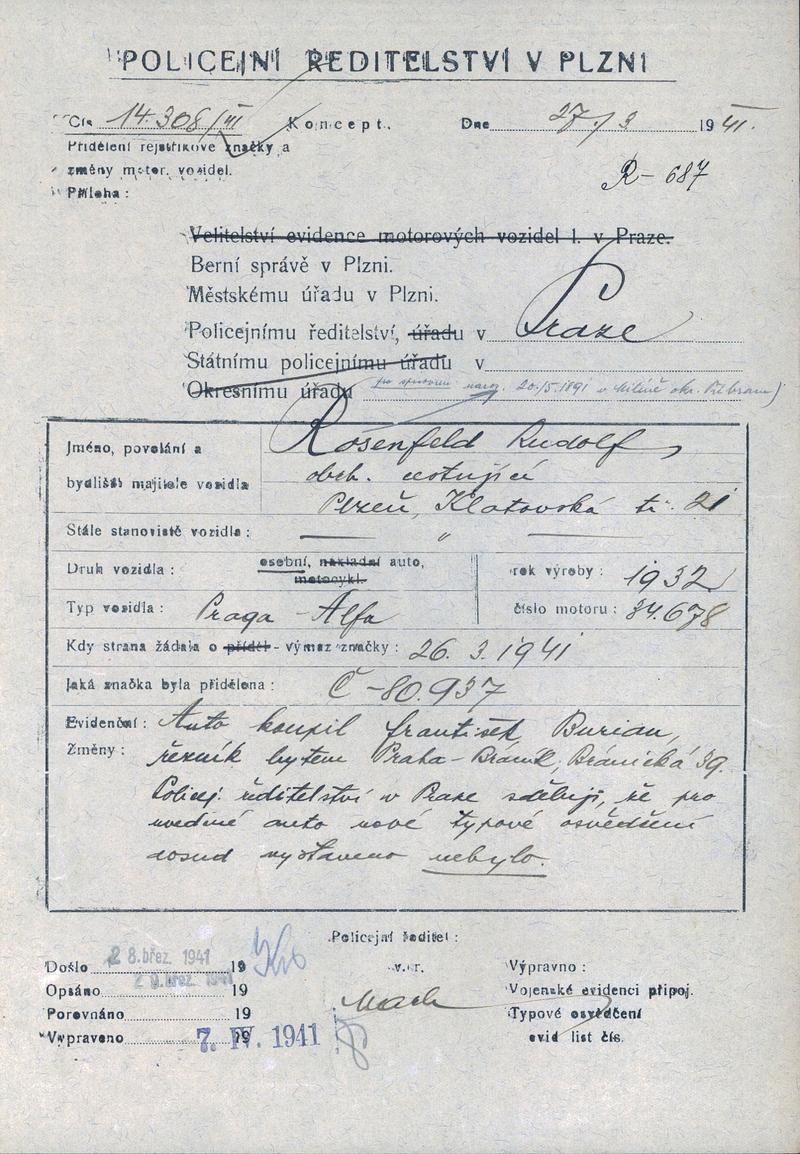 POLICEJNÍ ŘEDITELSTVÍ V PLZNI
Čís. 14.308/VI Koncept. Dne 27/3 1941.
Přidělení rejstříkové značky a
změny motor. vozidel.
Příloha :
R- 687
Velitelství evidence motorových vozidel I. v Praze.
Berní správě v Plzni.
Městskému úřadu v Plzni.
Policejnímu ředitelství, úřadu v Praze
Státnímu policejnímu úřadu v
Okresnímu úřadu
naroz. 20./5.1891 v Milíně okr. Příbram)
Jméno, povolání a
bydliště majitele vozidla
Rosenfeld Rudolf,
obch. cestující
Plzeň, Klatovská tř. 21
Stálé stanoviště vozidla : — " —
Druh vozidla : osobní, nákladní auto,
motocykl.
rok výroby : 1932
Typ vozidla : Praga - Alfa
číslo motoru : 34.678
Kdy strana žádala o příděl - výmaz značky : 26. 3. 1941
Jaká značka byla přidělena : Č -80.937
Evidenční
Změny :
Auto koupil František Burian,
řezník bytem Praha - Braník, Bránická 39.
Policej. ředitelství v Praze sděluji, že pro
uvedené auto nové typové osvědčení
dosud vystaveno nebylo.
Policejní ředitel :
v. z.
Mach
Došlo 28. břez. 1941 19
Opsáno 29. břez. 1941 19
Porovnáno 19
Vypraveno 7. IV. 1941 19
Výpravno :
Vojenské evidenci připoj.
Typové osvědčení
evid list čís.